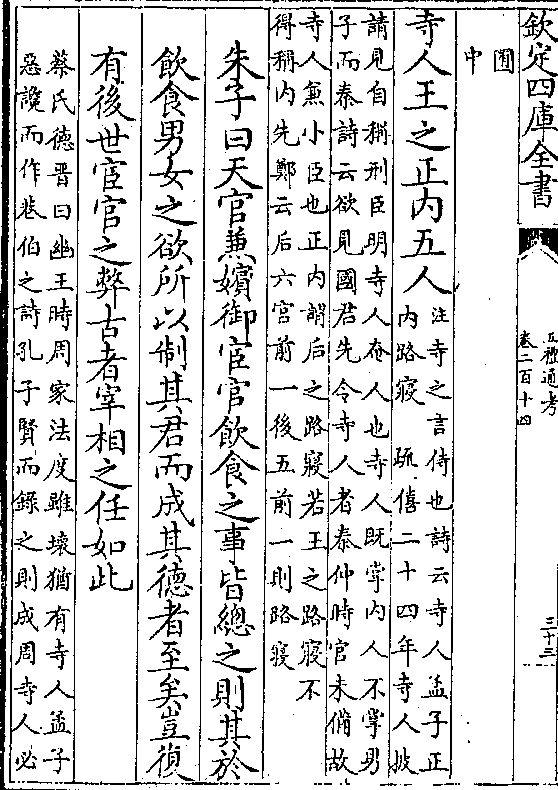 欽定四庫全書
五禮通考
卷二百十四
三十三
圃
中
寺人王之正内五人
注寺之言侍也詩云寺人孟子正
内路寢　疏僖二十四年寺人披
請見自稱刑臣明寺人奄人也寺人既掌内人不掌男
子而秦詩云欲見國君先令寺人者秦仲時官未備故
寺人兼小臣也正内謂后之路寢若王之路寢不
得稱内先鄭云后六宫前一後五前一則路寢
朱子曰天官兼嬪御宦官飲食之事皆總之則其於
飲食男女之欲所以制其君而成其德者至矣豈復
有後世宦官之弊古者宰相之任如此
蔡氏德晋曰幽王時周家法度雖壞猶有寺人孟子
惡讒而作巷伯之詩孔子賢而錄之則成周寺人必